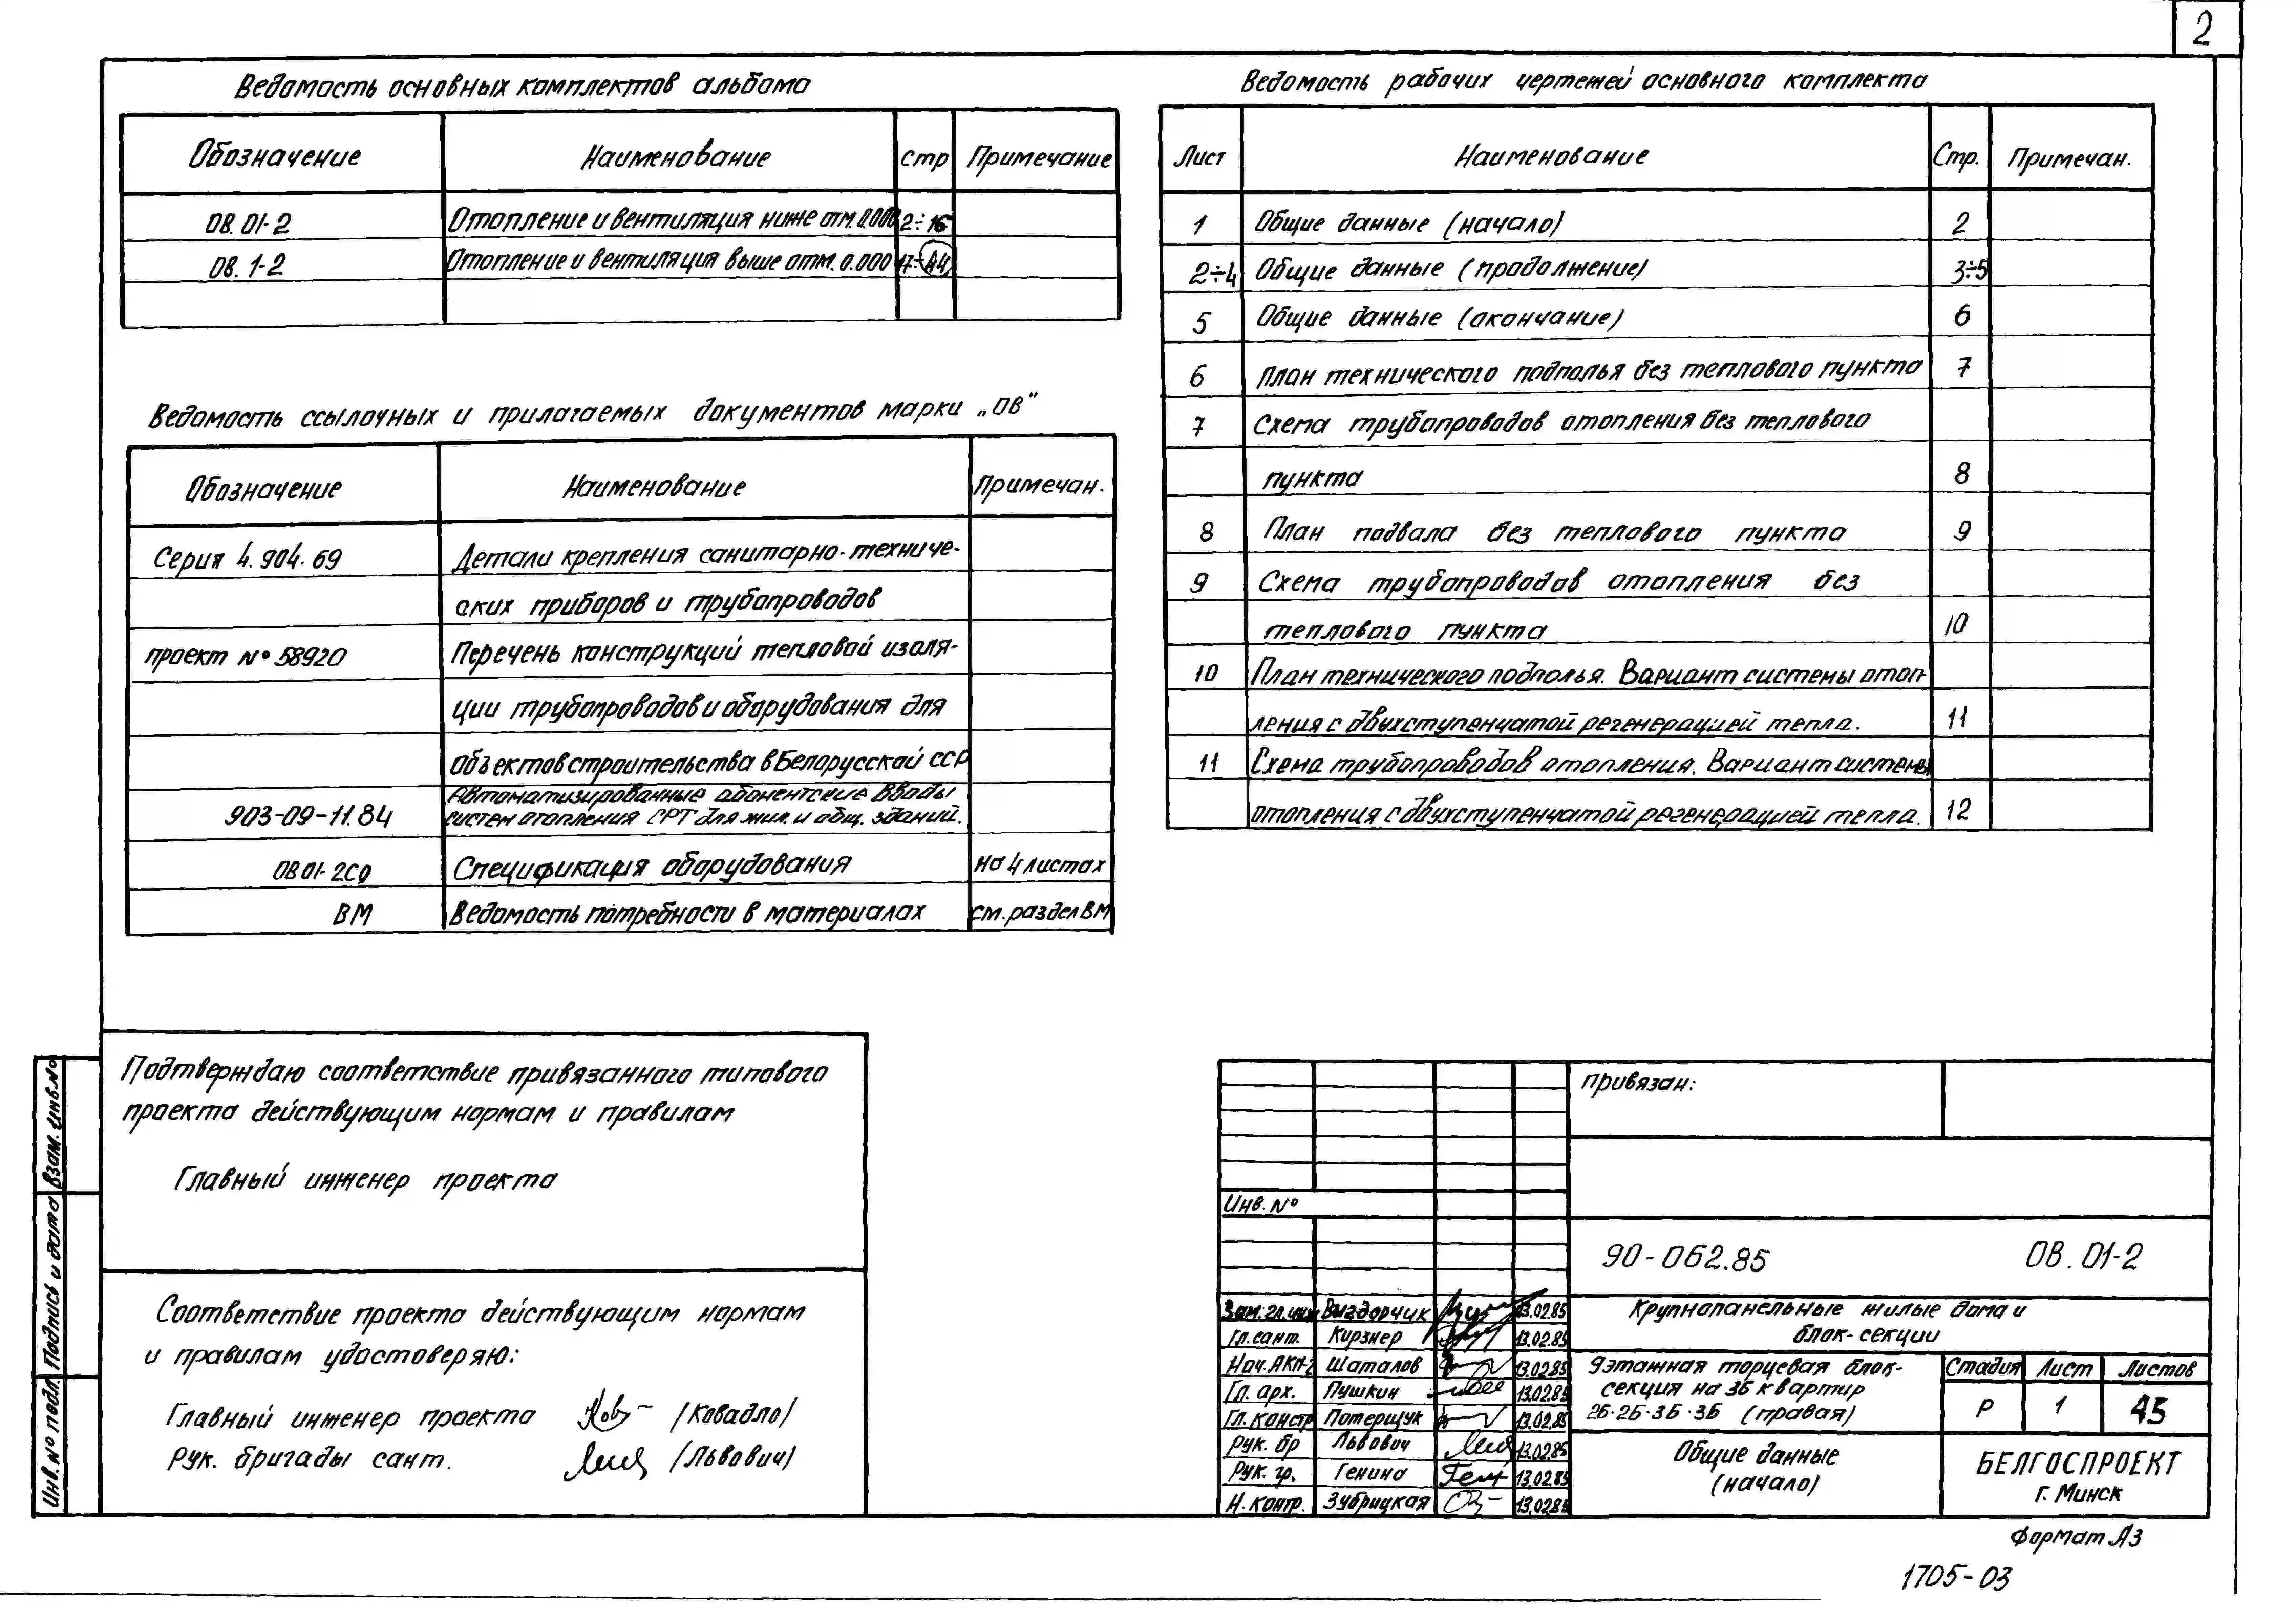 2
Ведомость основных комплектов альбома
Обозначение Наименование стр Примечание
ОВ.01-2 Отопление и вентиляция ниже отм. 0.000 2÷16
ОВ.1-2 Отопление и вентиляция выше отм. 0.000 17÷44
Ведомость ссылочных и прилагаемых документов марки „ОВ"
Обозначение Наименование Примечан.
Серия 4.904-69 Детали крепления санитарно-техниче-
ских приборов и трубопроводов
проект №58920 Перечень конструкций тепловой изоля-
ции трубопроводов и оборудования для
объектов строительства в Белорусской ССР
903-09-11.84 Автоматизированные абонентские вводы
систем отопления СРТ для жил. и общ. зданий.
ОВ01-2СО Спецификация оборудования на 4 листах
ВМ Ведомость потребности в материалах см. раздел ВМ
Ведомость рабочих чертежей основного комплекта
Лист Наименование Стр. Примечан.
1 Общие данные (начало) 2
2÷4 Общие данные (продолжение) 3÷5
5 Общие данные (окончание) 6
6 План технического подполья без теплового пункта 7
7 Схема трубопроводов отопления без теплового
пункта 8
8 План подвала без теплового пункта 9
9 Схема трубопроводов отопления без
теплового пункта 10
10 План технического подполья. Вариант системы отоп-
ления с двухступенчатой регенерацией тепла. 11
11 Схема трубопроводов отопления. Вариант системы
отопления с двухступенчатой регенерацией тепла. 12
Подтверждаю соответствие привязанного типового
проекта действующим нормам и правилам
Главный инженер проекта
Соответствие проекта действующим нормам
и правилам удостоверяю:
Главный инженер проекта /Ковадло/
Рук. бригады сант. /Львович/
Взам. инв. №
Подпись и дата
Инв. № подл.
Привязан:
Инв. №
90-062.85 ОВ. 01-2
Зам. гл. инж Выгдорчик 13.02.85
Гл. сант. Кирзнер 13.02.85
Нач. АКП-2 Шаталов 13.02.85
Гл. арх. Пушкин 13.02.85
Гл. констр Потерщук 13.02.85
Рук. бр Львович 13.02.85
Рук. гр. Генина 13.02.85
Н. контр. Зубрицкая 13.02.85
Крупнопанельные жилые дома и
блок-секции
9этажная торцевая блок-
секция на 36 квартир
2Б-2Б-3Б-3Б (правая)
Стадия Лист Листов
Р 1 45
Общие данные
(начало)
БЕЛГОСПРОЕКТ
г. Минск
Формат А3
1705-03